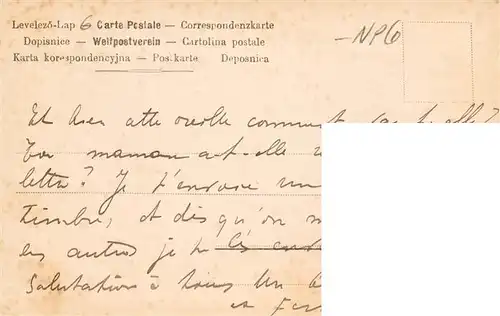 Levelező-Lap 6 Carte Postale — Correspondenzkarte
Dopisnice — Weltpostverein — Cartolina postale
Karta korespondencyjna — Post.karte Deposnica
-NP6
Et bien cette oreille comment ça t-elle?
Ton maman a-t-elle
letta? Je t'envoie un
timbre, et dès qu'on
les autres je te les
Salutations à tous Un
et